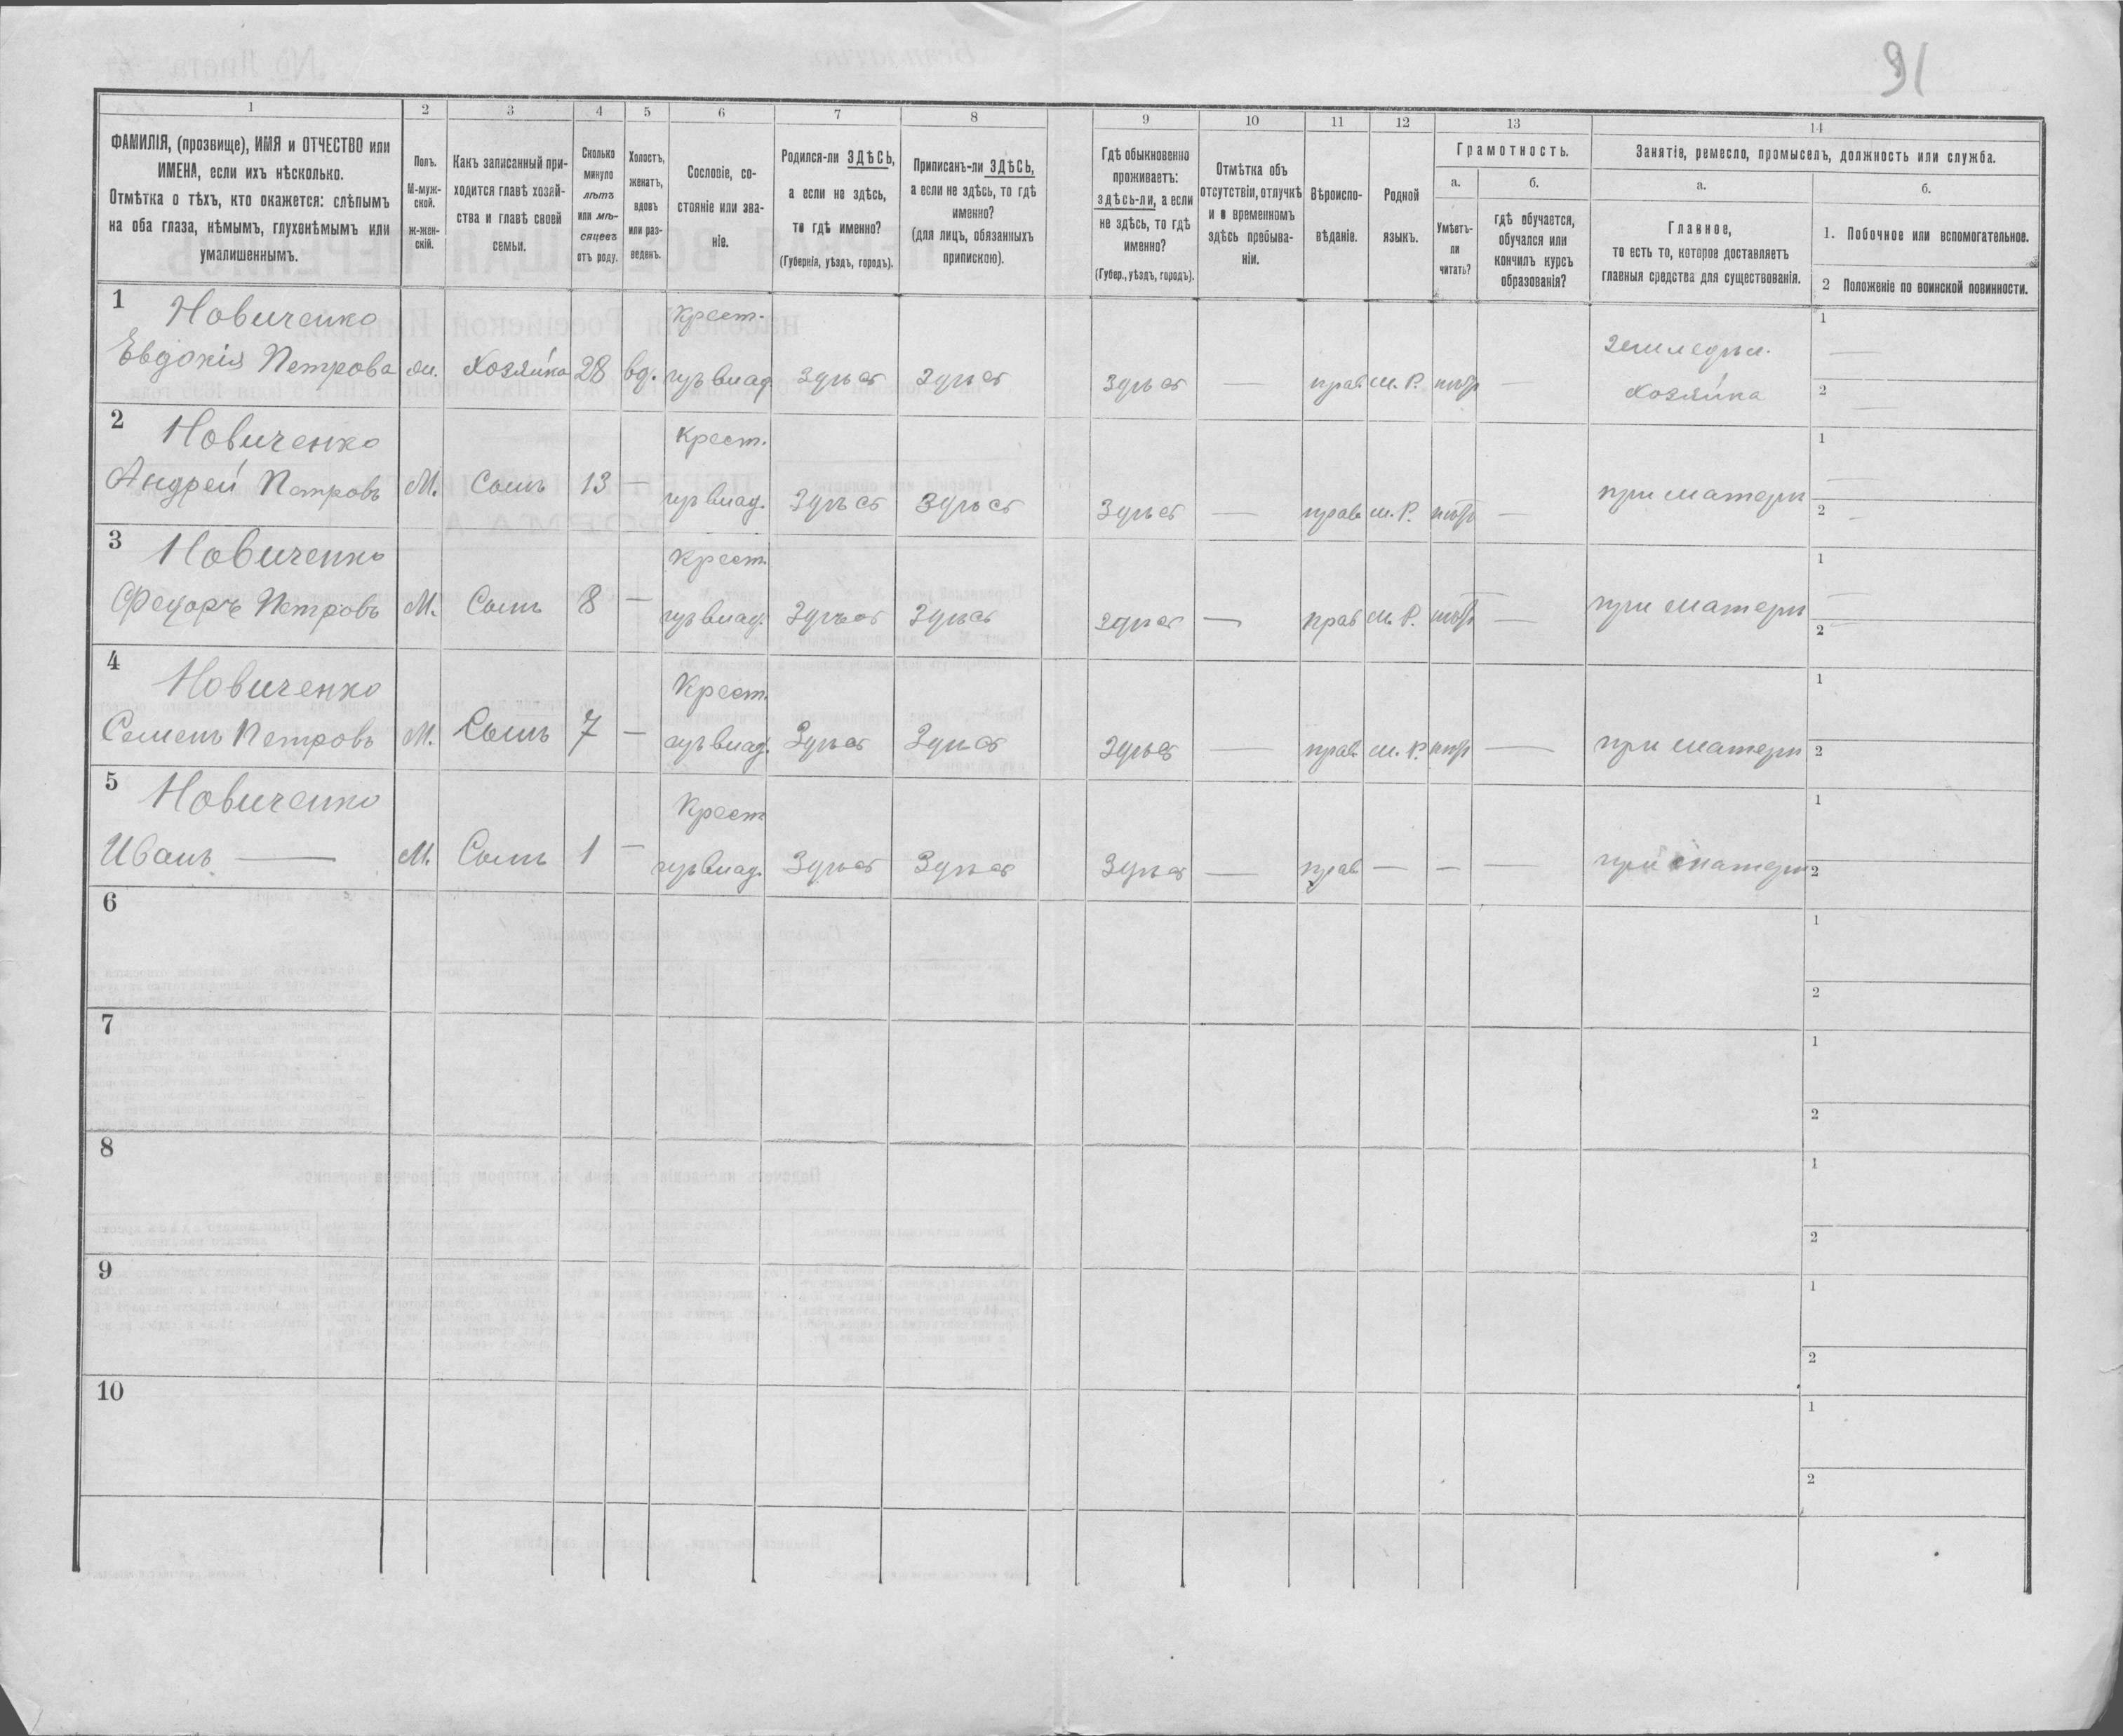 91
1
2
3
4
5
6
7
8
9
10
11
12
13
14
ФАМИЛІЯ, (прозвище), ИМЯ и ОТЧЕСТВО или
ИМЕНА, если ихъ нѣсколько.
Отмѣтка о тѣхъ, кто окажется: слѣпымъ
на оба глаза, нѣмымъ, глухонѣмымъ или
умалишеннымъ.
Полъ.
М-муж-
ской.
ж-жен-
скій.
Какъ записанный при-
ходится главѣ хозяй-
ства и главѣ своей
семьи.
Сколько
минуло
лѣтъ
или мѣ-
сяцевъ
отъ роду.
Холостъ,
женатъ,
вдовъ
или раз-
веденъ.
Сословіе, со-
стояніе или зва-
ніе.
Родился-ли ЗДѢСЬ,
а если не здѣсь,
то гдѣ именно?
(Губернія, уѣздъ, городъ).
Приписанъ-ли ЗДѢСЬ,
а если не здѣсь, то гдѣ
именно?
(для лицъ, обязанныхъ
припискою).
Гдѣ обыкновенно
проживаетъ:
здѣсь-ли, а если
не здѣсь, то гдѣ
именно?
(Губер., уѣздъ, городъ).
Отмѣтка объ
отсутствіи, отлучкѣ
и о временномъ
здѣсь пребыва-
ніи.
Вѣроиспо-
вѣданіе.
Родной
языкъ.
Грамотность.
а.
Умѣетъ-
ли
читать?
б.
гдѣ обучается,
обучался или
кончилъ курсъ
образованія?
Занятіе, ремесло, промыселъ, должность или служба.
а.
Главное,
то есть то, которое доставляетъ
главныя средства для существованія.
б.
1. Побочное или вспомогательное.
2 Положеніе по воинской повинности.
1 Новиченко Крест. 1 —
Евдокія Петрова Хозяйка 28 вд. Здѣсь Здѣсь Здѣсь — прав. м. Р. нѣтъ — земледѣл.
хозяйка 2 —
2 Новиченко Крест. 1 —
Андрей Петровъ М. Сынъ 13 — Здѣсь Здѣсь Здѣсь — прав. м. Р. нѣтъ — при матери 2 -
3 Новиченко Крест. 1 —
Федоръ Петровъ М. Сынъ 8 — Здѣсь Здѣсь Здѣсь — прав м. Р. нѣтъ — при матери 2
4 Новиченко Крест. 1
Семенъ Петровъ М. Сынъ 7 — Здѣсь Здѣсь Здѣсь — прав. м. Р. нѣтъ — при матери 2
5 Новиченко Крест 1
Иванъ — М. Сынъ 1 — Здѣсь Здѣсь Здѣсь — прав — — — при матери 2
6 1
2
7 1
2
8 1
2
9 1
2
10 1
2